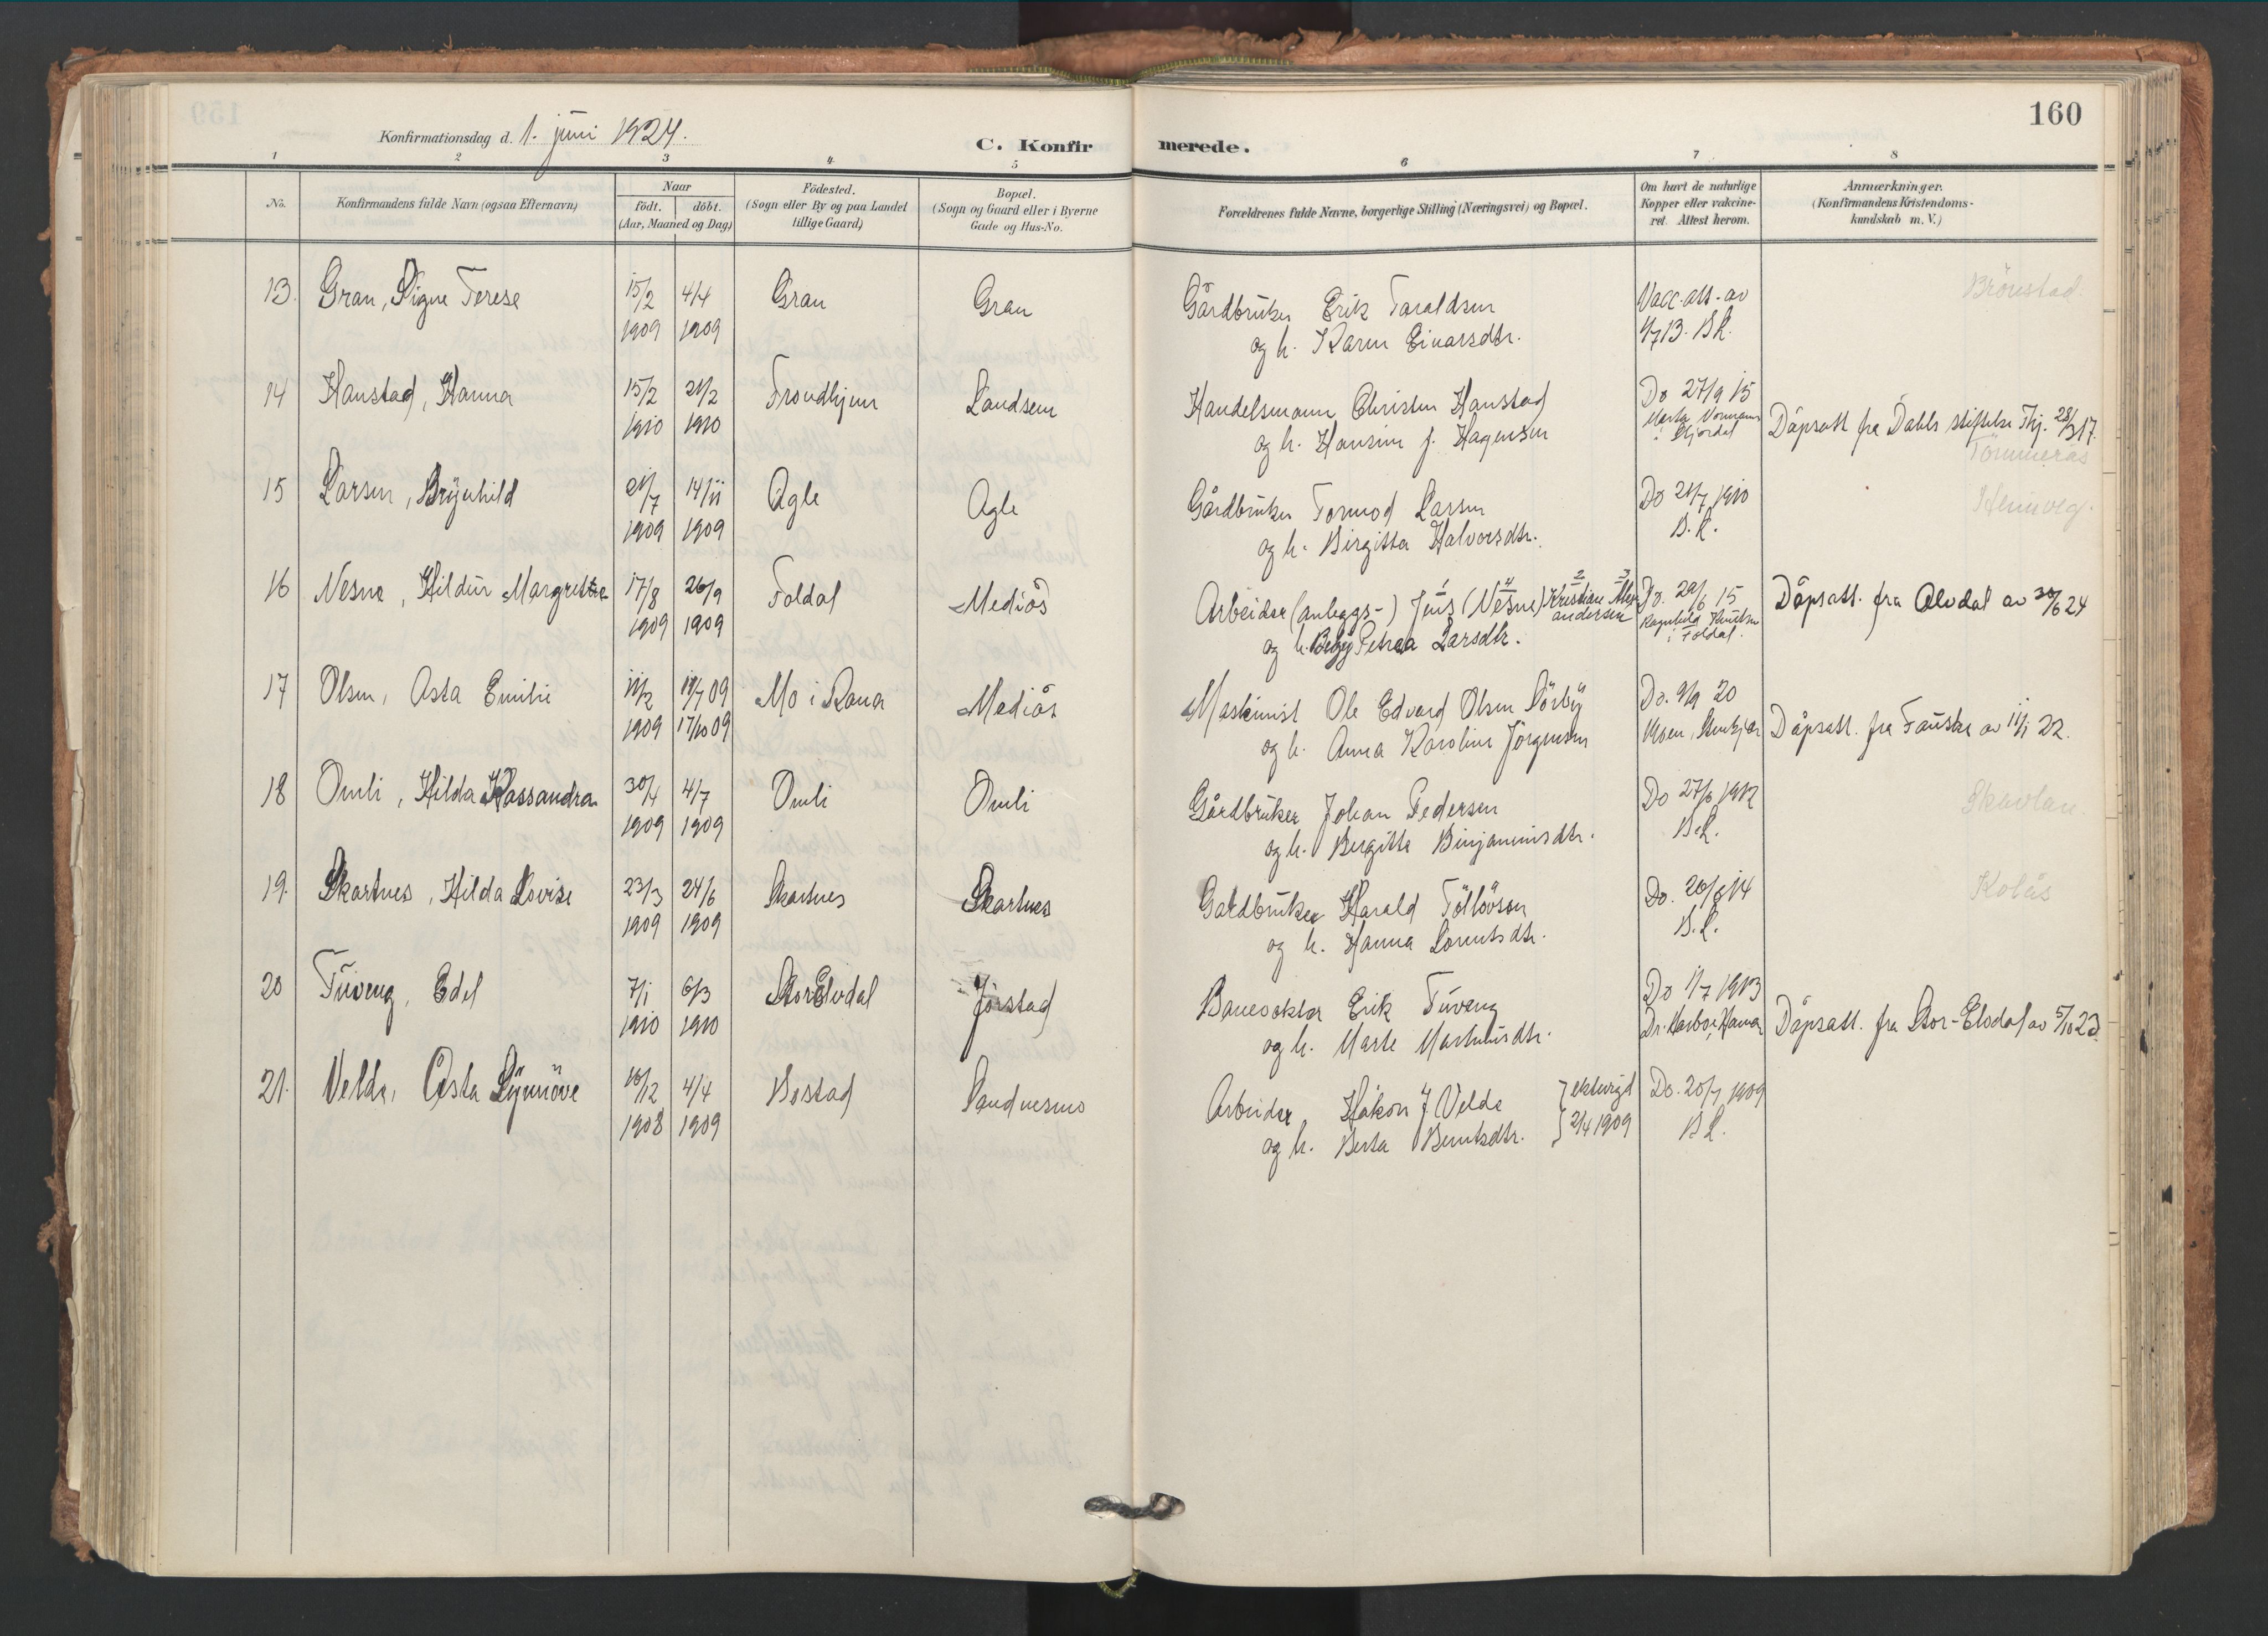 160
Konfirmationsdag d. 1. juni 1924.
C. Konfirmerede.
1 2 3 4 5 6 7 8
No.
Konfirmandens fulde Navn (ogsaa Efternavn)
Naar
födt. döbt.
(Aar, Maaned og Dag)
Födested.
(Sogn eller By og paa Landet
tillige Gaard)
Bopæl.
(Sogn og Gaard eller i Byerne
Gade og Hus-No.
Forældrenes fulde Navne, borgerlige Stilling (Næringsvei) og Bopæl.
Om havt de naturlige
Kopper eller vakcine-
ret. Attest herom.
Anmærkninger.
(Konfirmandens Kristendoms-
kundskab m. V.)
13. Gran, Signe Terese 15/2 4/4 Gran Gran Gårdbruker Erik Taraldsen Vacc. att. av Brönstad
1909 1909 og h. Karen Einarsdtr. 1/7 13. B.L.
14 Hanstad, Hanna 15/2 21/2 Trondhjem Landsem Handelsmann Christen Hanstad Do 27/9 15
1910 1910 og h. Hansine f. Hagensen Marta Normann i Stjørdal Dåpsatt fra Dahls stiftelse Thj. 28/3 17.
Tömmerås
15 Larsen, Brynhild 21/7 14/11 Agle Agle Gårdbruker Tormod Larsen Do 21/7 1910
1909 1909 og h. Birgitta Halvorsdtr. B.L.
16 Nesne, Hildur Margrethe 17/8 26/9 Foldal Mediås Arbeider (anleggs-) Jens (Nesne) Kristian Alexandersen Do. 29/6 15 Dåpsatt. fra Alvdal av 30/6 24
1909 1909 og h. Petrea Larsdtr. Ragnhild Knutsen i Foldal.
17 Olsen, Asta Emilie 11/2 19/7 09 Mo i Rana Mediås Maskinist Ole Edvard Olsen Sörby Do. 9/9 20
1909 17/10 09 og h. Anna Karoline Jörgensen Moen, Stenkjær Dåpsatt. fra Fauske av 11/1 22.
18 Omli, Hilda Kassandra 30/4 4/7 Omli Omli Gårdbruker Johan Pedersen Do 27/6 1912 Skavlan
1909 1909 og h. Bergitte Binjaminsdtr. B.L.
19. Skartnes, Hilda Lovise 23/3 24/6 Skartnes Skartnes Gardbruker Harald Töllövsen Do. 26/6 14 Kolås
1909 1909 og h. Hanna Lorentsdtr. B.L.
20 Tuveng, Edel 7/1 6/3 Stor Elvdal Jörstad Banevokter Erik Tuveng Do 1/7 1913
1910 1910 og h. Marte Martinusdtr. Dr. Harboe, Hamar Dåpsatt. fra Stor-Elvdal av 5/10 23.
21. Velde, Asta Synnöve 10/12 4/4 Bostad Sandnesmo Arbeider Håkon J Velde } ektevigd Do. 20/7 1909
1908 1909 og h. Berta Berntsdtr. } 2/4 1909 B.L.